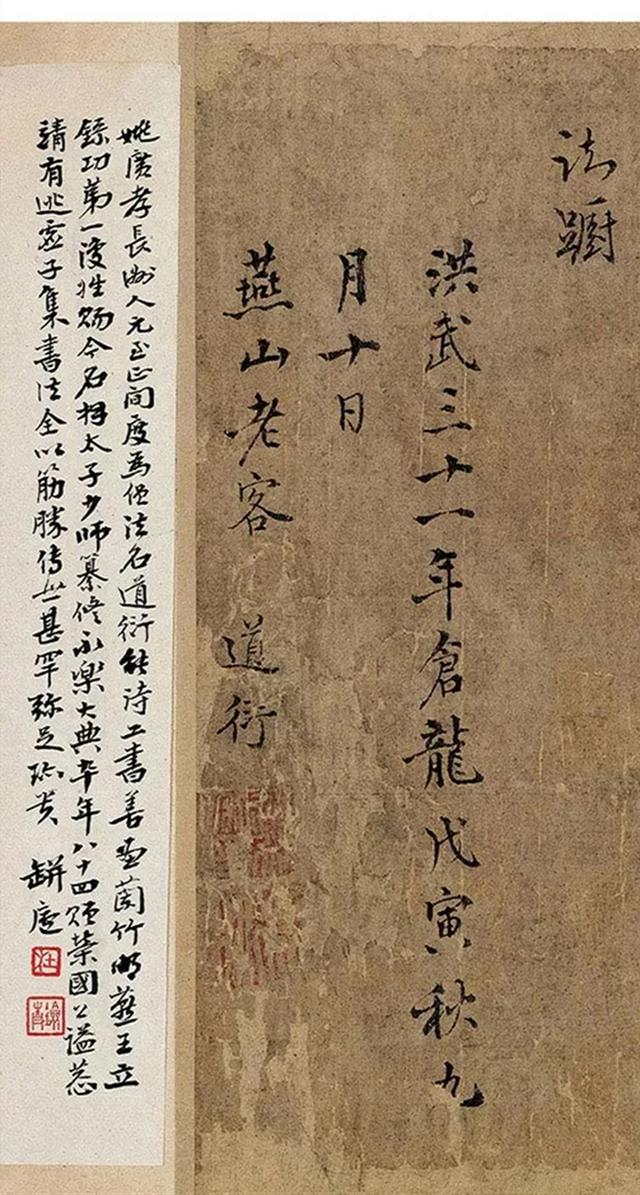 洪武三十一年倉龍戊寅秋九
月十日
燕山老客 道衍
姚廣孝長洲人元至正间度為僧法名道衍能詩工書善画蘭竹明燕王立
錄功第一復姓賜今名拜太子少師纂修永樂大典卒年八十四贈榮國公謚恭
靖有逃虛子集書法全以筋勝傳世甚罕弥足珎贵 缾庵
汪